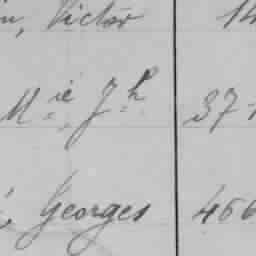 n, Victor 14
M ie J h 37-
, Georges 466